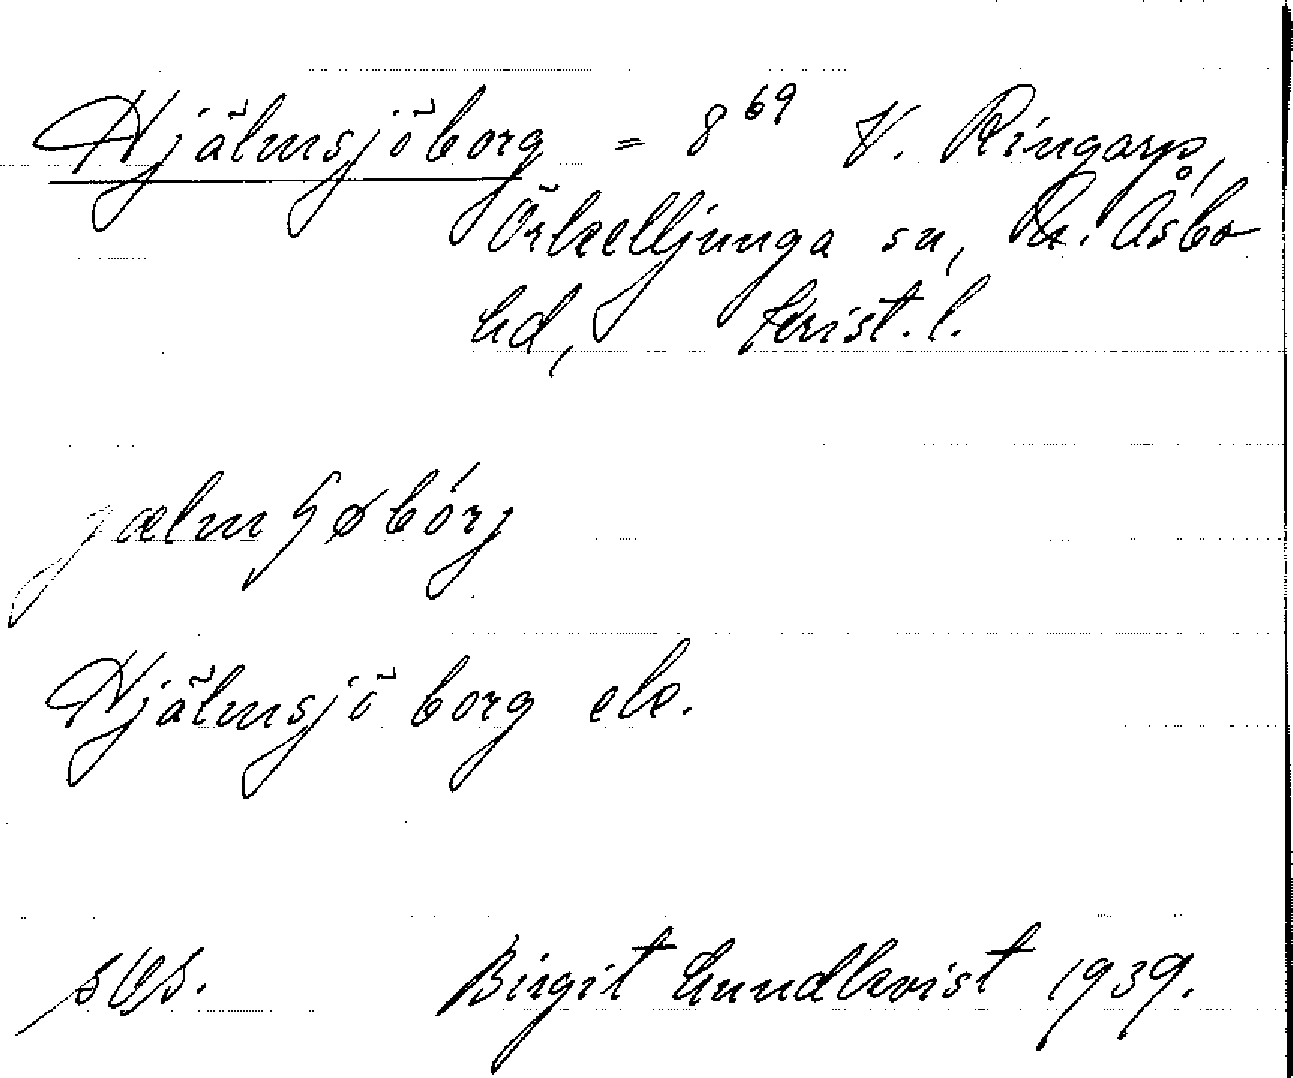 Hjälmsjöborg = 8⁶⁹ V. Ringarp,
Örkelljunga sn, N. Åsbo
hd, Krist. l.
jælmʃøbórj
Hjälmsjö borg ek.
Birgit Lundkvist 1939.